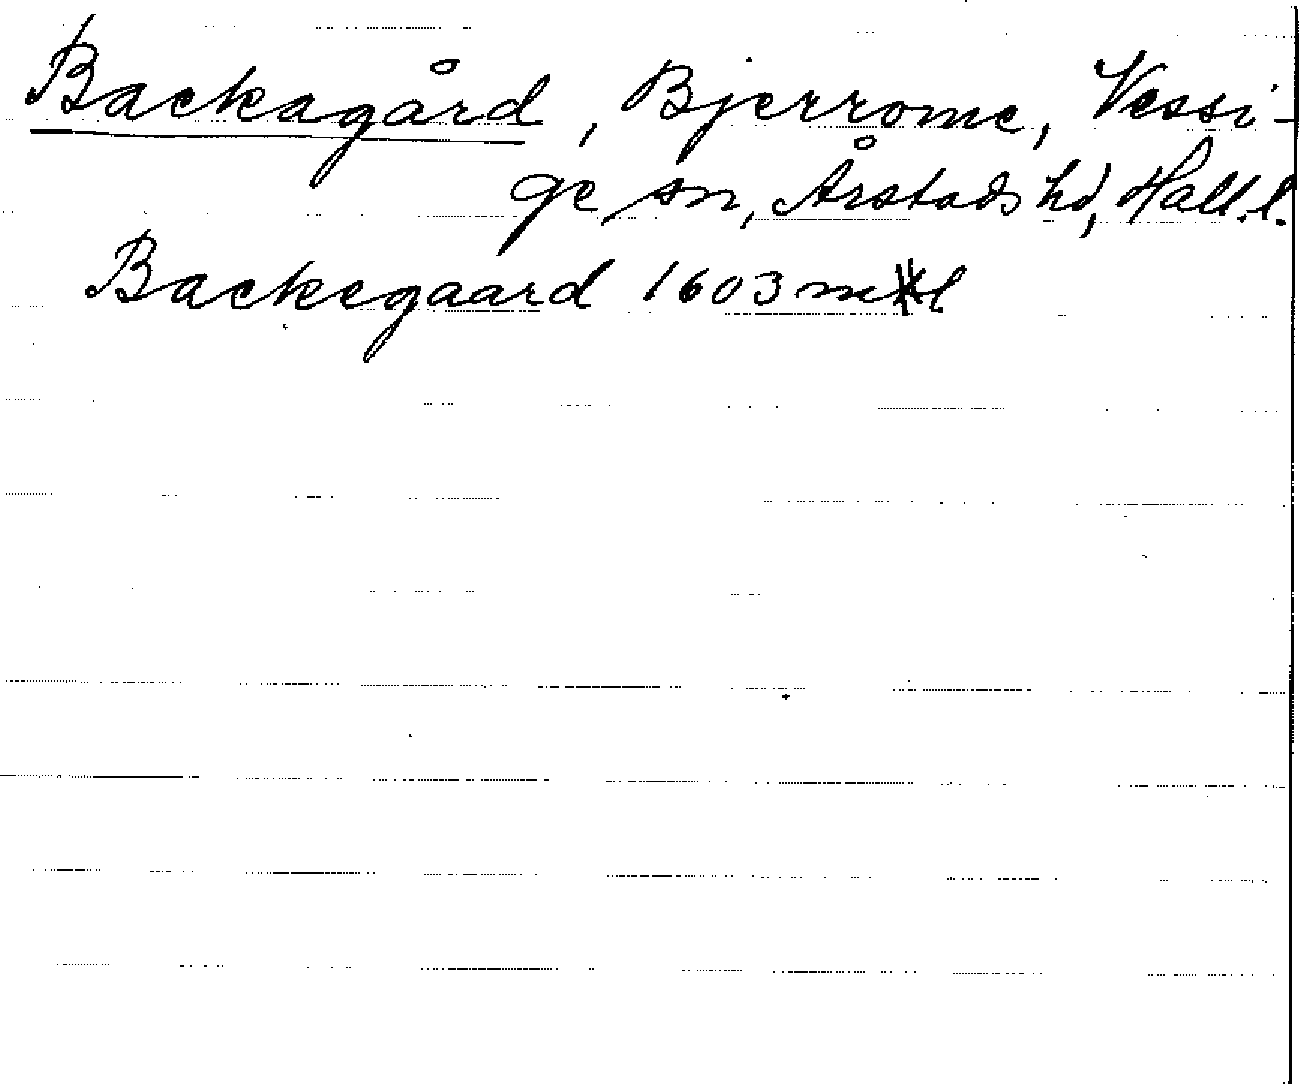 Backagård, Bjerrome, Vessi-
ge sn, Årstads hd, Hall. l.
Backegaard 1603 mtl